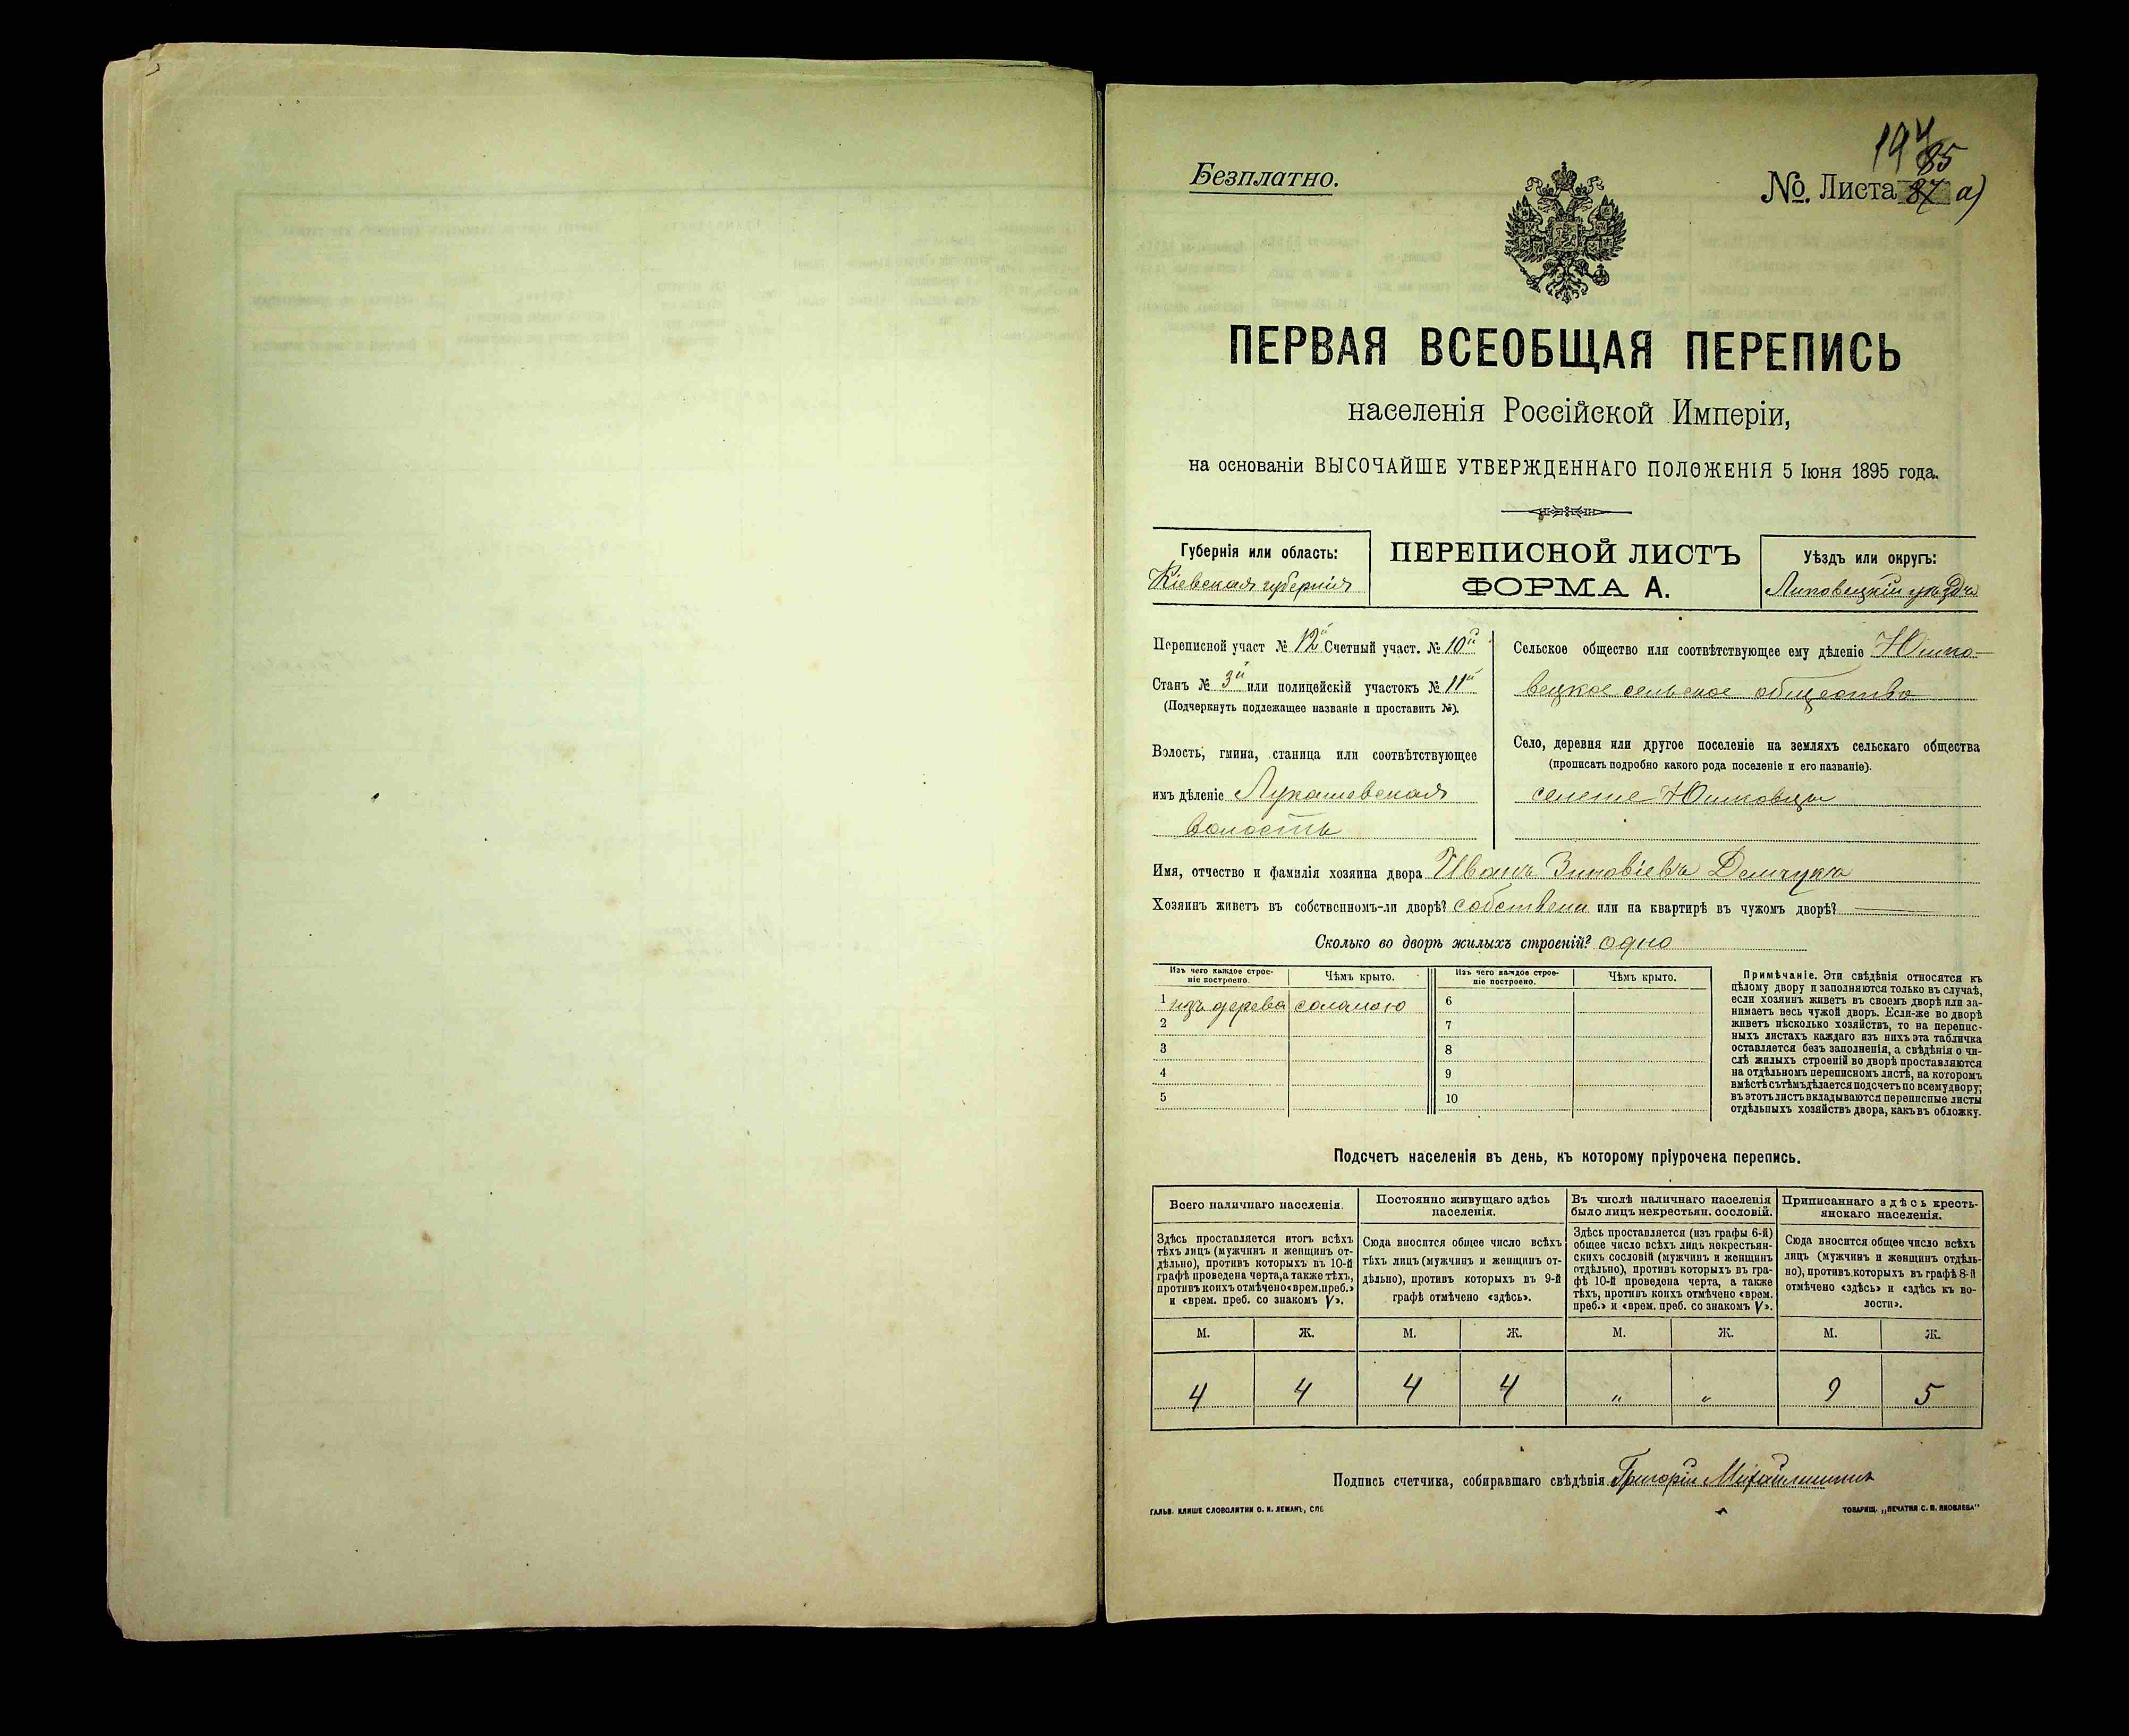 Безплатно.
194
85
№ Листа 87 а)
ПЕРВАЯ ВСЕОБЩАЯ ПЕРЕПИСЬ
населенія Россійской Имперіи,
на основаніи ВЫСОЧАЙШЕ УТВЕРЖДЕННАГО ПОЛОЖЕНІЯ 5 Іюня 1895 года.
Губернія или область:
Кіевская губернія
ПЕРЕПИСНОЙ ЛИСТЪ
ФОРМА А.
Уѣздъ или округъ:
Липовецкій уѣздъ
Переписной участ № 12й Счетный участ. № 10й
Станъ № 3й или полицейскій участокъ № 11й
(Подчеркнуть подлежащее названіе и проставить №).
Волость, гмина, станица или соотвѣтствующее
имъ дѣленіе Лукашевская
волость
Сельское общество или соотвѣтствующее ему дѣленіе Юшко-
вецкое сельское общество
Село, деревня или другое поселеніе на земляхъ сельскаго общества
(прописать подробно какого рода поселеніе и его названіе).
селеніе Юшковцы
Имя, отчество и фамилія хозяина двора Иванъ Зиновіевъ Демчукъ
Хозяинъ живетъ въ собственномъ-ли дворѣ? собствени или на квартирѣ въ чужомъ дворѣ? —
Сколько во дворѣ жилыхъ строеній? одно
Изъ чего каждое строе-
ніе построено.
Чѣмъ крыто.
Изъ чего каждое строе-
ніе построено.
Чѣмъ крыто.
1 изъ дерева соломою 6
2 7
3 8
4 9
5 10
Примѣчаніе. Эти свѣдѣнія относятся къ
цѣлому двору и заполняются только въ случаѣ,
если хозяинъ живетъ въ своемъ дворѣ или за-
нимаетъ весь чужой дворъ. Если-же во дворѣ
живетъ нѣсколько хозяйствъ, то на перепис-
ныхъ листахъ каждаго изъ нихъ эта табличка
оставляется безъ заполненія, а свѣдѣнія о чи-
слѣ жилыхъ строеній во дворѣ проставляются
на отдѣльномъ переписномъ листѣ, на которомъ
вмѣстѣ съ тѣмъ дѣлается подсчетъ по всему двору;
въ этотъ листъ вкладываются переписные листы
отдѣльныхъ хозяйствъ двора, какъ въ обложку.
Подсчетъ населенія въ день, къ которому пріурочена перепись.
Всего наличнаго населенія.
Здѣсь проставляется итогъ всѣхъ
тѣхъ лицъ (мужчинъ и женщинъ от-
дѣльно), противъ которыхъ въ 10-й
графѣ проведена черта, а также тѣхъ,
противъ коихъ отмѣчено «врем. преб.»
и «врем. преб. со знакомъ V».
Постоянно живущаго здѣсь
населенія.
Сюда вносится общее число всѣхъ
тѣхъ лицъ (мужчинъ и женщинъ от-
дѣльно), противъ которыхъ въ 9-й
графѣ отмѣчено «здѣсь».
Въ числѣ наличнаго населенія
было лицъ некрестьян. сословій.
Здѣсь проставляется (изъ графы 6-й)
общее число всѣхъ лицъ некрестьян-
скихъ сословій (мужчинъ и женщинъ
отдѣльно), противъ которыхъ въ гра-
фѣ 10-й проведена черта, а также
тѣхъ, противъ коихъ отмѣчено «врем.
преб.» и «врем. преб. со знакомъ V».
Приписаннаго здѣсь кресть-
янскаго населенія.
Сюда вносится общее число всѣхъ
лицъ (мужчинъ и женщинъ отдѣль-
но), противъ которыхъ въ графѣ 8-й
отмѣчено «здѣсь» и «здѣсь къ во-
лости».
М. Ж. М. Ж. М. Ж. М. Ж.
4 4 4 4 " " 9 5
Подпись счетчика, собиравшаго свѣдѣнія Григорій
ГАЛЬВ. КЛИШЕ СЛОВОЛИТНИ О. И. ЛЕМАНЪ, СПБ
ТОВАРИЩ. „ПЕЧАТНЯ С. П. ЯКОВЛЕВА"